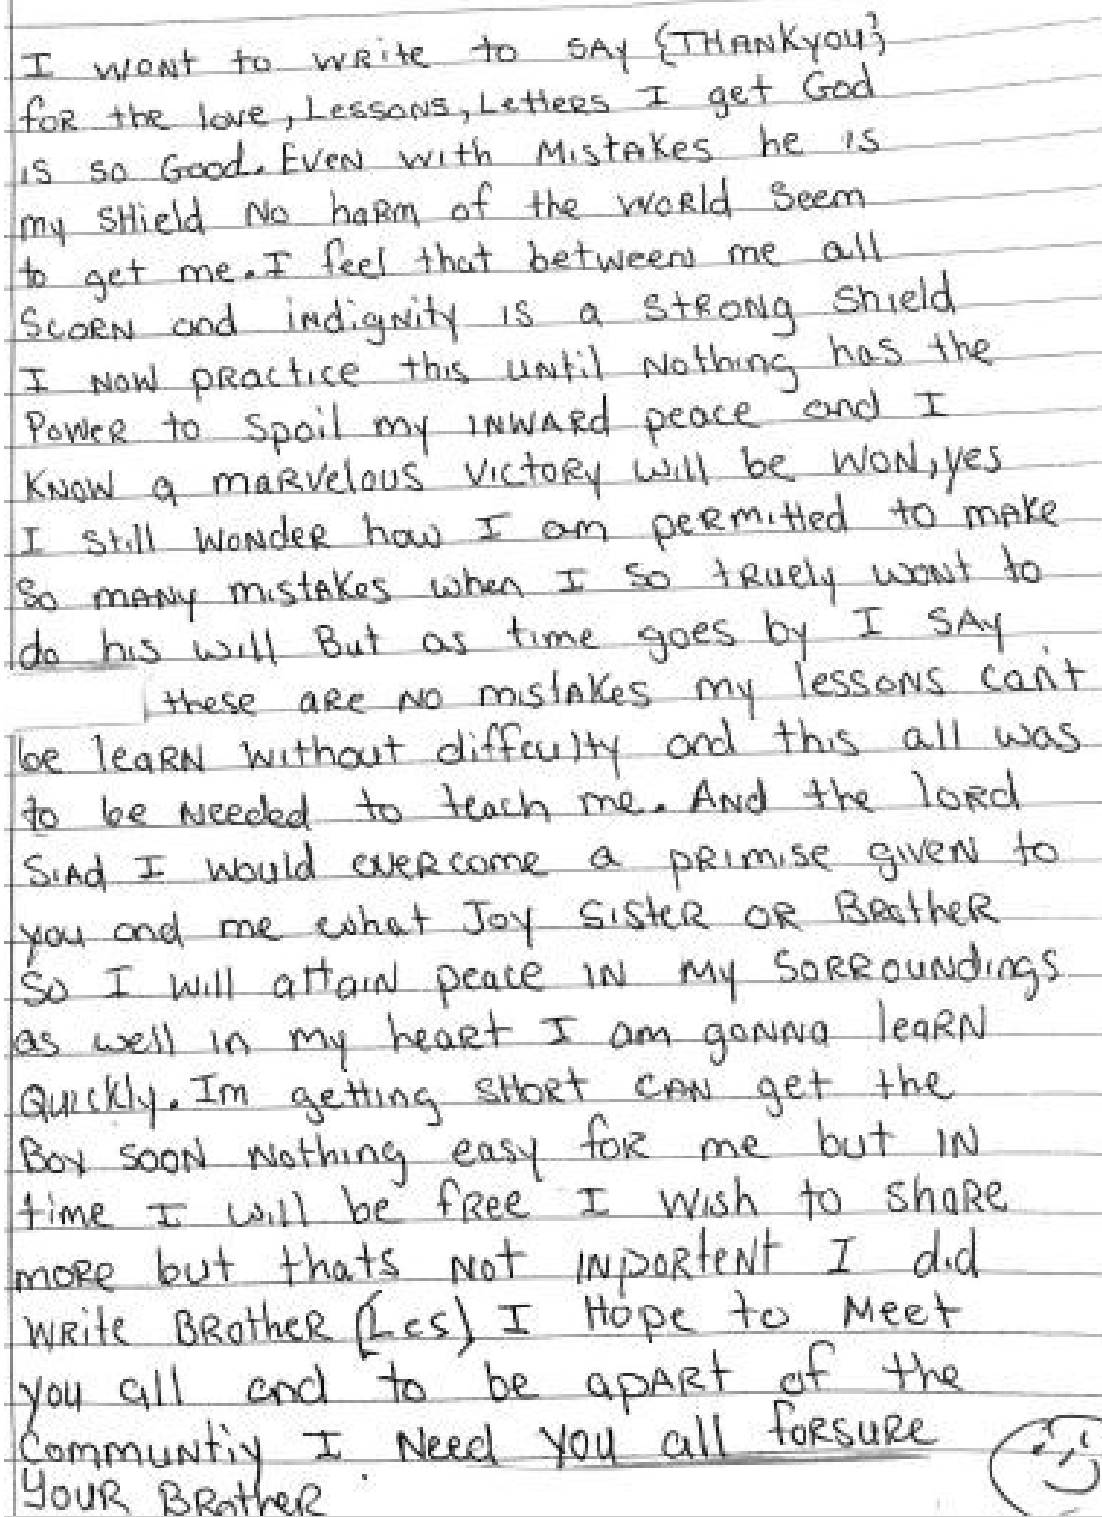 I want to write to SAY {THANKyou}
for the love, Lessons, Letters I get God
is so Good. Even with Mistakes he is
my SHield No harm of the world Seem
to get me. I feel that between me all
Scorn and indignity is a strong shield
I now practice this until Nothing has the
Power to Spoil my inward peace and I
Know a marvelous Victory will be won, yes
I still wonder how I am permitted to make
So many mistakes when I so truely want to
do his will But as time goes by I SAY
these are no mistakes my lessons can't
be learn without diffculty and this all was
to be Needed to teach me. And the lord
Siad I would overcome a primise given to
you and me what Joy Sister or Brother
So I will attain peace in my Sorroundings
as well in my heart I am gonna learn
Quickly. Im getting SHort can get the
Boy soon Nothing easy for me but in
time I will be free I wish to share
more but thats Not inportent I did
write Brother (Les) I Hope to Meet
you all and to be apart of the
Communtiy I Need you all forsure
Your Brother